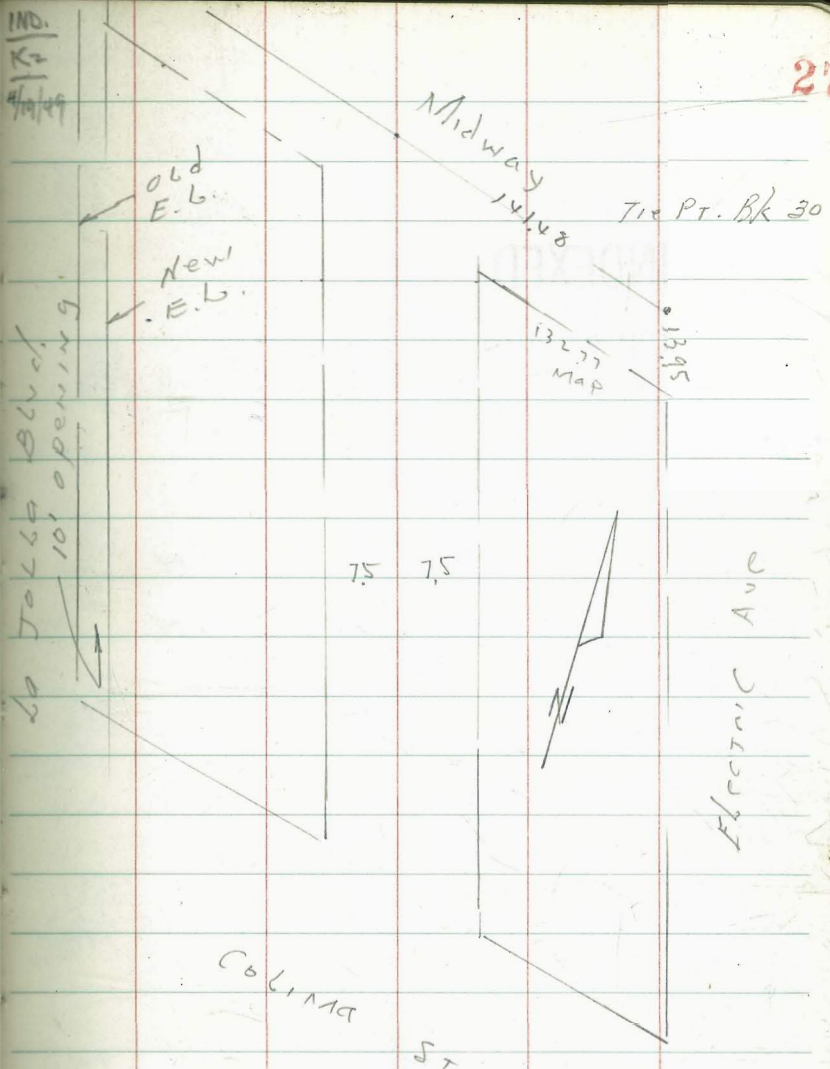 IND.
27
Midway
Old
E.L.
141.48
Tie PT. Bk 30
New
E.L.
132.77
Map
13.95
La Jolla Blvd.
10' opening.
7.5 7.5
N
Electric Ave
Colima
ST